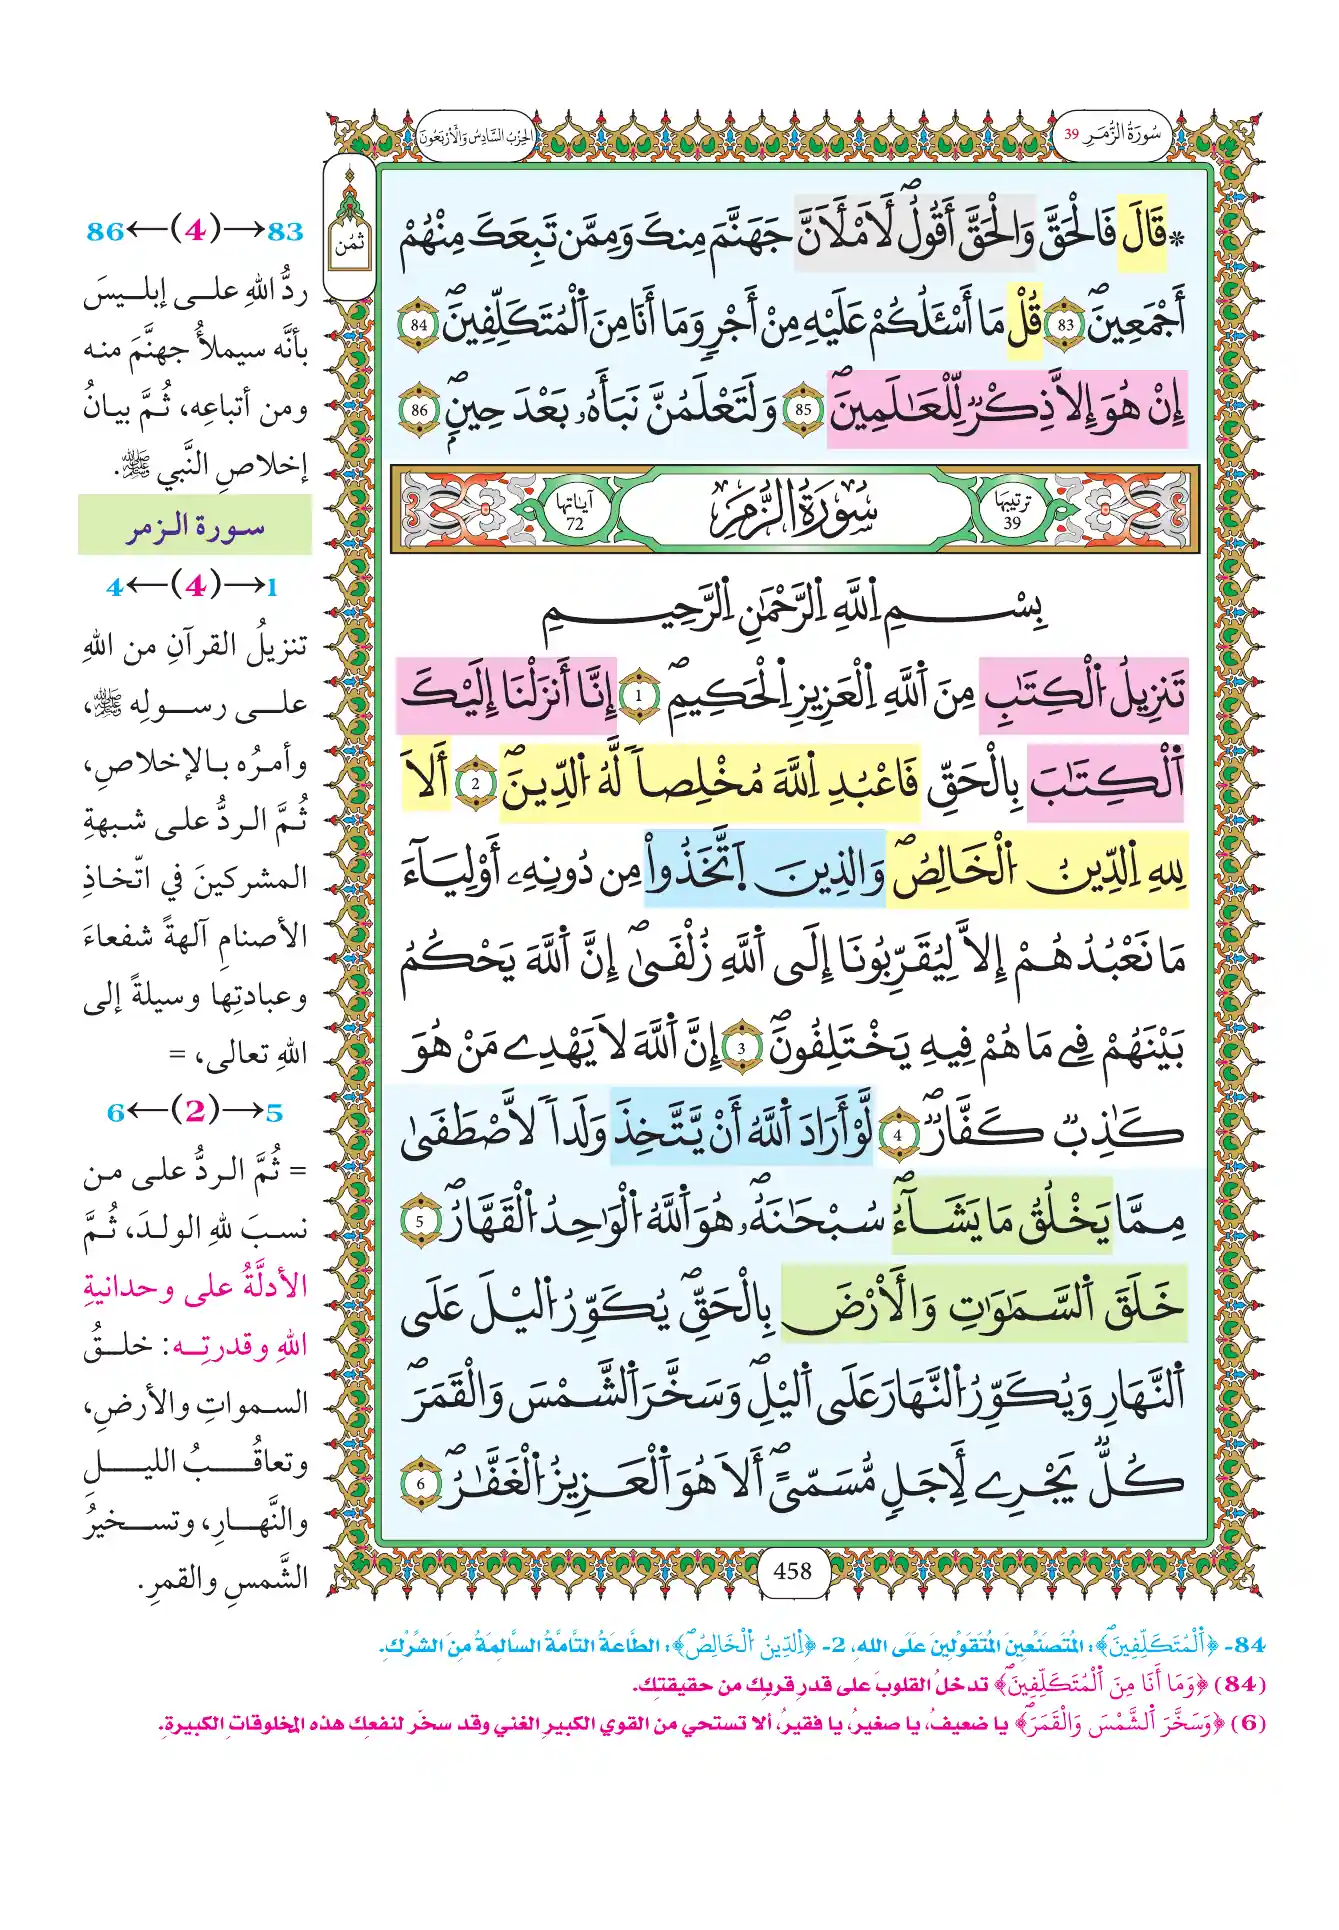 سُورَةُ الزُّمَر 39
الحِزْبُ السَّادِسُ وَالأَرْبَعُونَ
ثمُن
۞ قَالَ فَالْحَقَّ وَالْحَقَّ أَقُولُ لَأَمْلَأَنَّ جَهَنَّمَ مِنكَ وَمِمَّن تَبِعَكَ مِنْهُمُۥ
أَجْمَعِينَۖ 83 قُلْ مَا أَسْـَٔلُكُمْ عَلَيْهِ مِنْ أَجْرٖ وَمَا أَنَا مِنَ اَ۬لْمُتَكَلِّفِينَۖ 84
إِنْ هُوَ إِلَّا ذِكْرٞ لِّلْعَٰلَمِينَۖ 85 وَلَتَعْلَمُنَّ نَبَأَهُۥ بَعْدَ حِينٖۖ 86
ترتيبها 39
سُورَةُ الزُّمَرِ
آياتها 72
بِسْمِ اِ۬للَّهِ اِ۬لرَّحْمَٰنِ اِ۬لرَّحِيمِ
تَنزِيلُ اُ۬لْكِتَٰبِ مِنَ اَ۬للَّهِ اِ۬لْعَزِيزِ اِ۬لْحَكِيمِۖ 1 إِنَّا أَنزَلْنَا إِلَيْكَ
اَ۬لْكِتَٰبَ بِالْحَقِّ فَاعْبُدِ اِ۬للَّهَ مُخْلِصاٗ لَّهُ اُ۬لدِّينَۖ 2 أَلَا
لِلهِ اِ۬لدِّينُ اُ۬لْخَالِصُۖ وَالذِينَ اَ۪تَّخَذُواْ مِن دُونِهِۦ أَوْلِيَآءَ
مَا نَعْبُدُهُمْ إِلَّا لِيُقَرِّبُونَا إِلَى اَ۬للَّهِ زُلْفَىٰۖ إِنَّ اَ۬للَّهَ يَحْكُمُ
بَيْنَهُمْ فِے مَا هُمْ فِيهِ يَخْتَلِفُونَۖ 3 إِنَّ اَ۬للَّهَ لَا يَهْدِے مَنْ هُوَ
كَٰذِبٞ كَفَّارٞۖ 4 لَّوْ أَرَادَ اَ۬للَّهُ أَنْ يَّتَّخِذَ وَلَداٗ لَّاصْطَفَىٰ
مِمَّا يَخْلُقُ مَا يَشَآءُۖ سُبْحَٰنَهُۥۖ هُوَ اَ۬للَّهُ اُ۬لْوَٰحِدُ اُ۬لْقَهَّارُۖ 5
خَلَقَ اَ۬لسَّمَٰوَٰتِ وَالْأَرْضَ بِالْحَقِّۖ يُكَوِّرُ اُ۬ليْلَ عَلَى
اَ۬لنَّهَارِ وَيُكَوِّرُ اُ۬لنَّهَارَ عَلَى اَ۬ليْلِۖ وَسَخَّرَ اَ۬لشَّمْسَ وَالْقَمَرَۖ
كُلّٞ يَجْرِے لِأَجَلٖ مُّسَمّىًۖ أَلَا هُوَ اَ۬لْعَزِيزُ اُ۬لْغَفَّٰرُۖ 6
458
83→(4)←86
ردُّ اللهِ على إبليسَ
بأنَّه سيملأُ جهنَّمَ منه
ومن أتباعِه، ثُمَّ بيانُ
إخلاصِ النَّبي ﷺ.
سورة الزمر
1→(4)←4
تنزيلُ القرآنِ من اللهِ
على رسولِه ﷺ،
وأمرُه بالإخلاصِ،
ثُمَّ الردُّ على شبهةِ
المشركينَ في اتّخاذِ
الأصنامِ آلهةً شفعاءَ
وعبادتِها وسيلةً إلى
اللهِ تعالى، =
5→(2)←6
= ثُمَّ الردُّ على من
نسبَ للهِ الولدَ، ثُمَّ
الأدلَّةُ على وحدانيةِ
اللهِ وقدرتِه: خلقُ
السمواتِ والأرضِ،
وتعاقُبُ الليلِ
والنَّهارِ، وتسخيرُ
الشَّمسِ والقمرِ.
84- ﴿اَ۬لْمُتَكَلِّفِينَۖ﴾: المُتَصَنِّعِينَ المُتَقَوِّلِينَ عَلَى اللهِ، 2- ﴿اِ۬لدِّينُ اُ۬لْخَالِصُۖ﴾: الطَّاعَةُ التَّامَّةُ السَّالِمَةُ مِنَ الشِّرْكِ.
(84) ﴿وَمَا أَنَا مِنَ اَ۬لْمُتَكَلِّفِينَۖ﴾ تدخلُ القلوبَ على قدرِ قربِك من حقيقتِك.
(6) ﴿وَسَخَّرَ اَ۬لشَّمْسَ وَالْقَمَرَۖ﴾ يا ضعيفُ، يا صغيرُ، يا فقيرُ، ألا تستحي من القوي الكبيرِ الغني وقد سخّر لنفعِك هذه المخلوقاتِ الكبيرةِ.